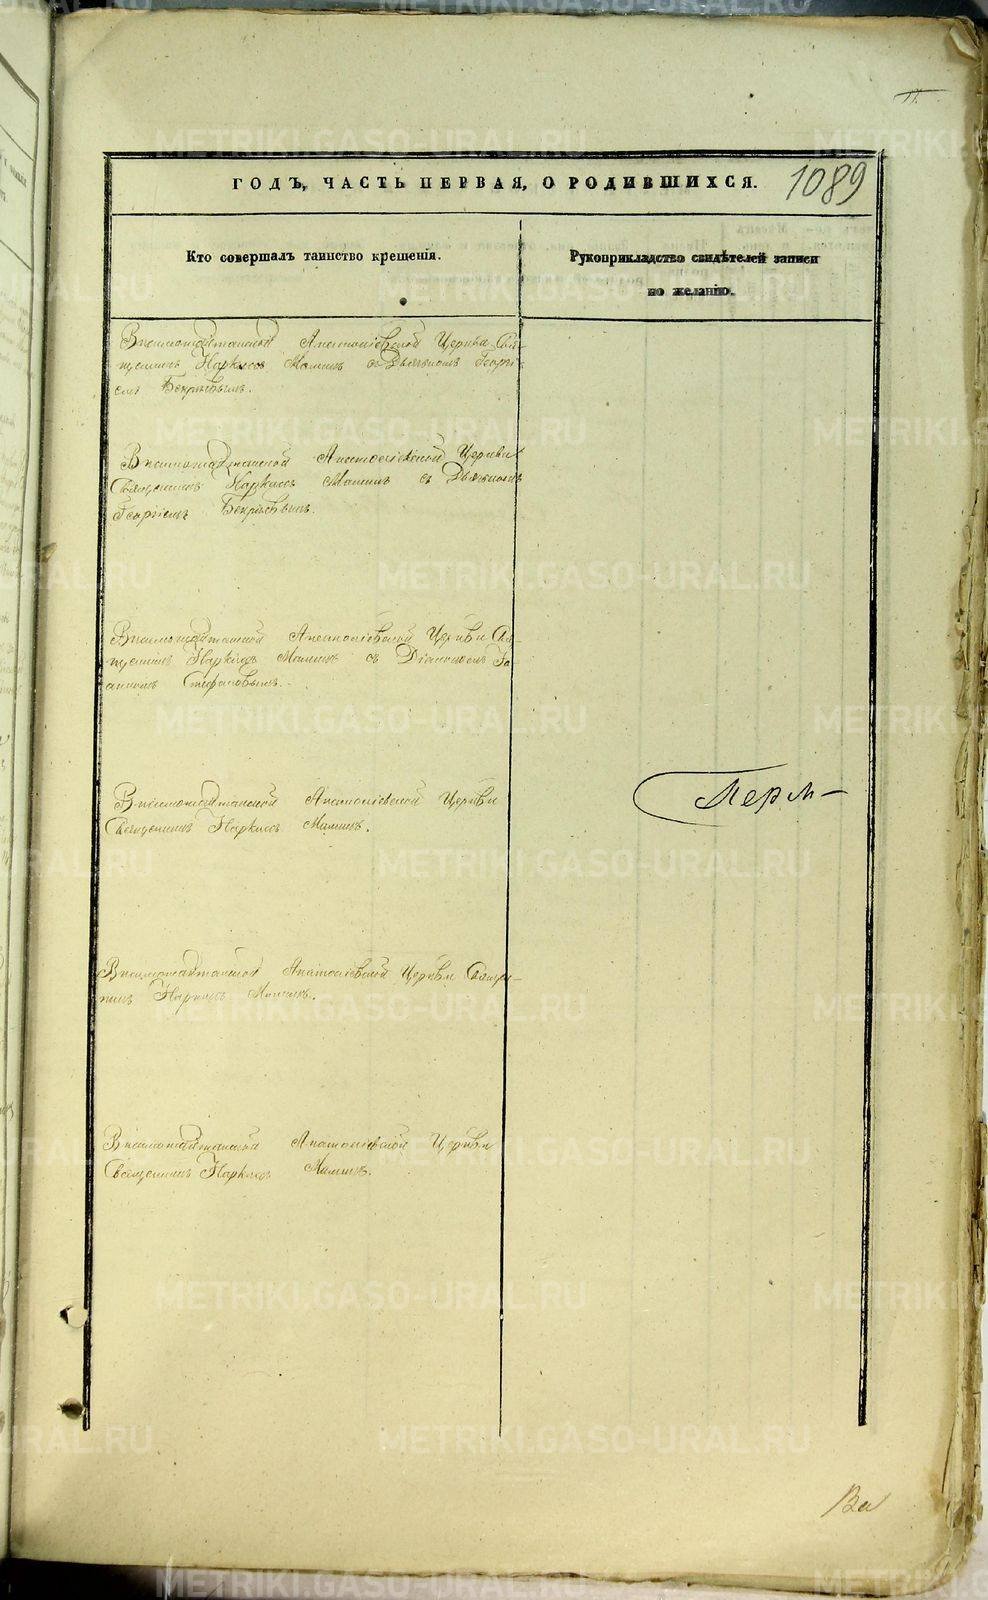 1089
ГОДЪ, ЧАСТЬ ПЕРВАЯ, О РОДИВШИХСЯ.
Кто совершалъ таинство крещенія.
Рукоприкладство свидѣтелей записи
по желанію.
Висимошайтанской Анатоліевской Церкви Свя-
щенникъ Наркисъ Маминъ съ Дьячкомъ Георгі-
емъ Бекрѣевымъ.
Висимошайтанской Анатоліевской Церкви
Священникъ Наркисъ Маминъ съ Дьячкомъ
Георгіемъ Бекрѣевымъ
Висимошайтанской Анатоліевской Церкви Свя-
щенникъ Наркисъ Маминъ съ Діакономъ Іо-
анномъ Стефановымъ.
Висимошайтанской Анатоліевской Церкви
Священникъ Наркисъ Маминъ.
Перм-
Висимошайтанской Анатоліевской Церкви Священ-
никъ Наркисъ Маминъ.
Висимошайтанской Анатоліевской Церкви
Священникъ Наркисъ Маминъ.
METRIKI.GASO-URAL.RU